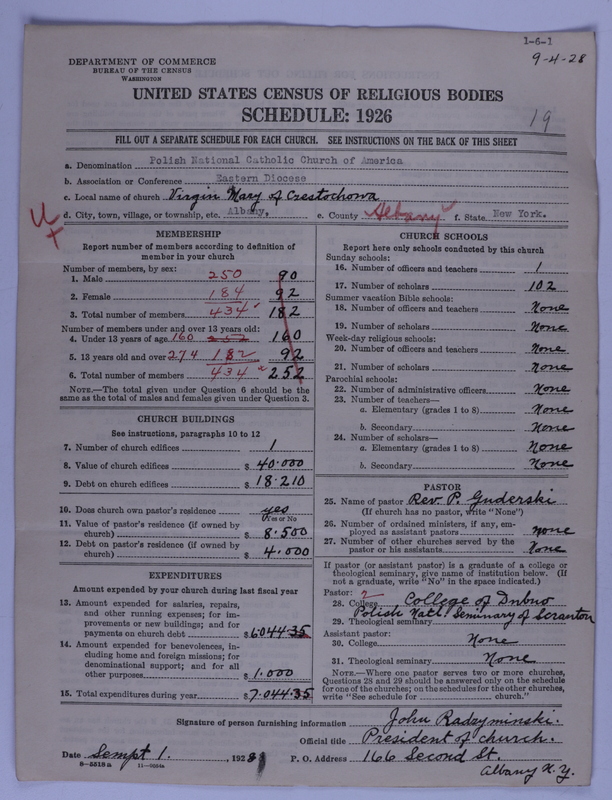 1-6-1
9-4-28
DEPARTMENT OF COMMERCE
BUREAU OF THE CENSUS
WASHINGTON
UNITED STATES CENSUS OF RELIGIOUS BODIES
SCHEDULE: 1926
19
FILL OUT A SEPARATE SCHEDULE FOR EACH CHURCH. SEE INSTRUCTIONS ON THE BACK OF THIS SHEET
a. Denomination Polish National Catholic Church of America
b. Association or Conference Eastern Diocese
c. Local name of church Virgin Mary of Crestochowa
d. City, town, village, or township, etc. Albany, e. County Albany f. State New York.
MEMBERSHIP
Report number of members according to definition of
member in your church
Number of members, by sex:
1. Male 250 90
2. Female 184 92
3. Total number of members 434 182
Number of members under and over 13 years old:
4. Under 13 years of age 160 252 160
5. 13 years old and over 274 182 92
6. Total number of members 434 252
NOTE.—The total given under Question 6 should be the
same as the total of males and females given under Question 3.
CHURCH BUILDINGS
See instructions, paragraphs 10 to 12
7. Number of church edifices 1
8. Value of church edifices $ 40.000
9. Debt on church edifices $ 18.210
10. Does church own pastor's residence yes
Yes or No
11. Value of pastor's residence (if owned by
church) $ 8.500
12. Debt on pastor's residence (if owned by
church) $ 4.000
EXPENDITURES
Amount expended by your church during last fiscal year
13. Amount expended for salaries, repairs,
and other running expenses; for im-
provements or new buildings; and for
payments on church debt $ 6044.35
14. Amount expended for benevolences, in-
cluding home and foreign missions; for
denominational support; and for all
other purposes $ 1.000
15. Total expenditures during year $ 7.044.35
CHURCH SCHOOLS
Report here only schools conducted by this church
Sunday schools:
16. Number of officers and teachers 1
17. Number of scholars 102
Summer vacation Bible schools:
18. Number of officers and teachers None
19. Number of scholars None
Week-day religious schools:
20. Number of officers and teachers None
21. Number of scholars None
Parochial schools:
22. Number of administrative officers None
23. Number of teachers—
a. Elementary (grades 1 to 8) None
b. Secondary None
24. Number of scholars—
a. Elementary (grades 1 to 8) None
b. Secondary None
PASTOR
25. Name of pastor Rev. P. Guderski
(If church has no pastor, write "None")
26. Number of ordained ministers, if any, em-
ployed as assistant pastors none
27. Number of other churches served by the
pastor or his assistants None
If pastor (or assistant pastor) is a graduate of a college or
theological seminary, give name of institution below. (If
not a graduate, write "No" in the space indicated.)
Pastor: 2
28. College College of Dnbno
29. Theological seminary Polish Natl. Seminary of Scranton
Assistant pastor:
30. College None
31. Theological seminary None
NOTE.—Where one pastor serves two or more churches,
Questions 28 and 29 should be answered only on the schedule
for one of the churches; on the schedules for the other churches,
write "See schedule for church."
Signature of person furnishing information John Radzyminski.
Official title President of church.
Date Sempt 1. 1928 P. O. Address 166 Second St.
Albany N. Y.
8-5518 a 11-9084a